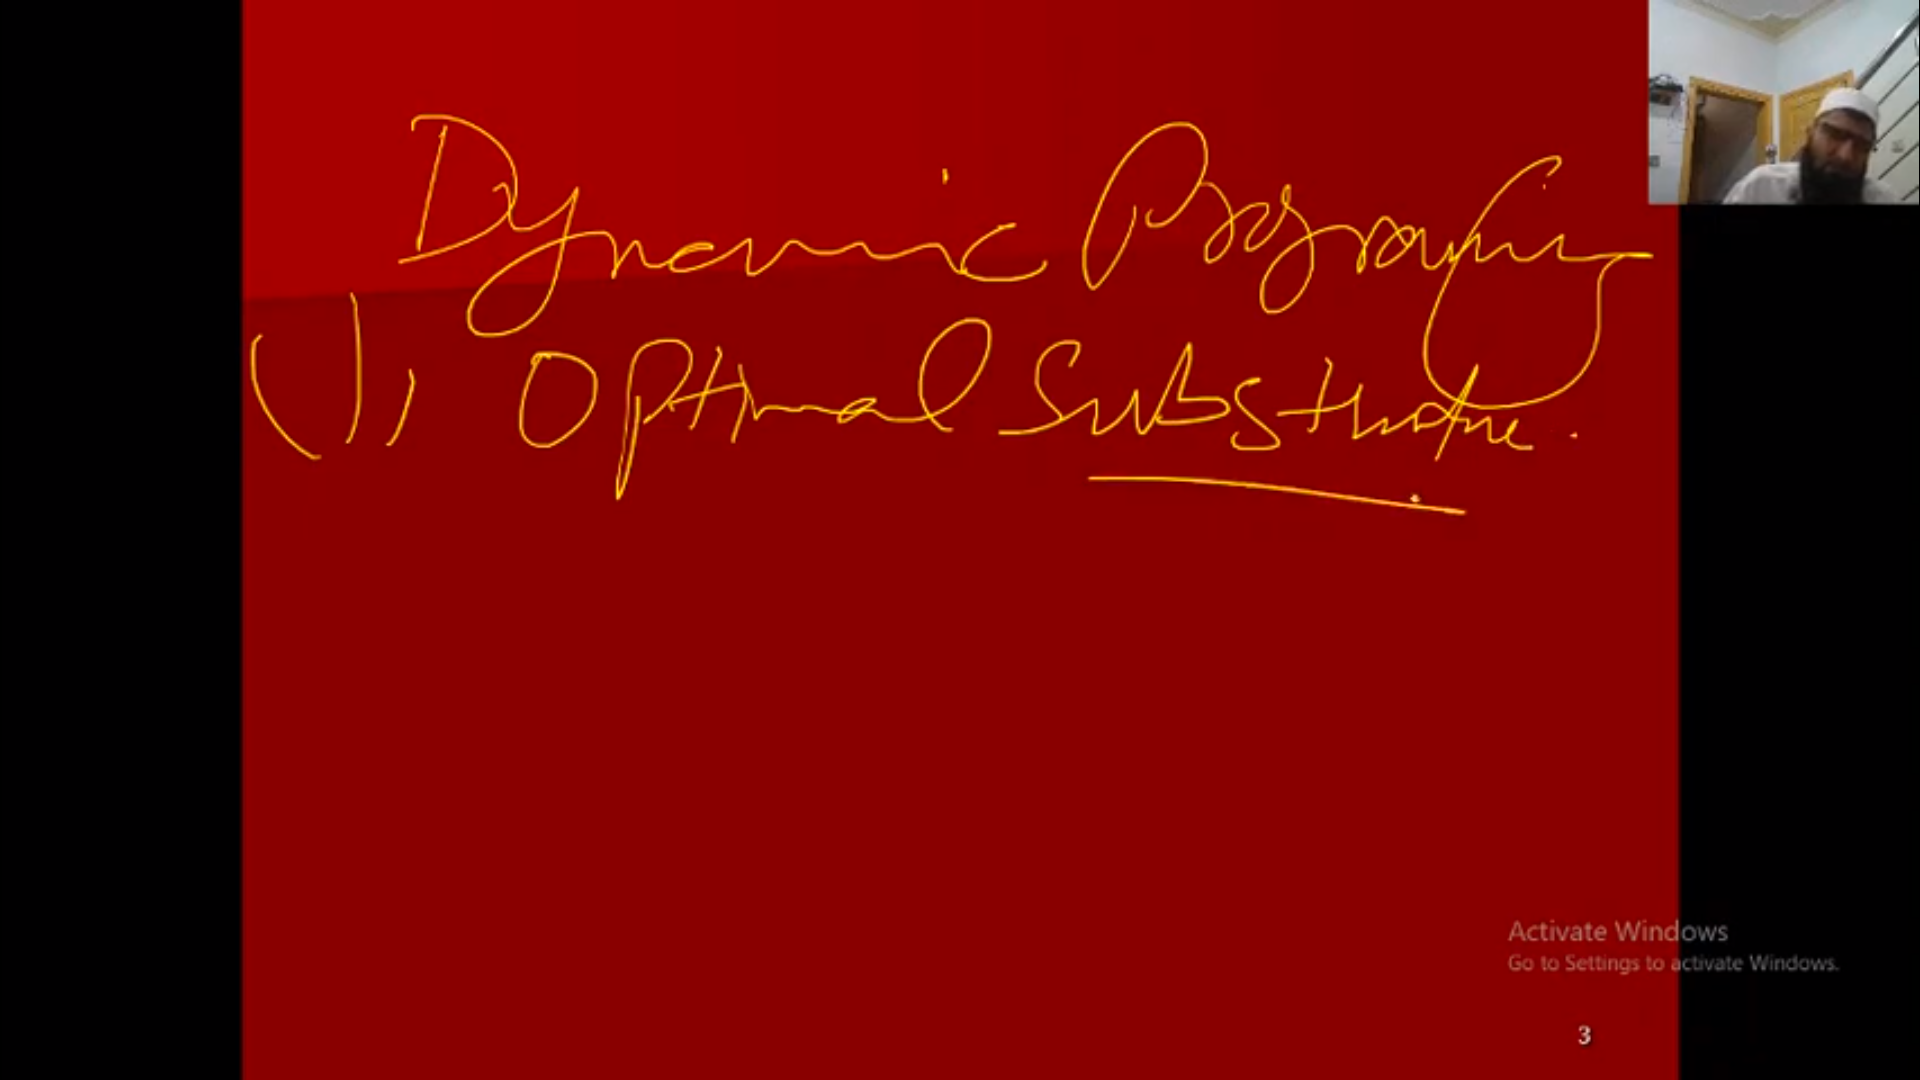 Dynamic Programing
(1), Optimal Substructure.
Activate Windows
Go to Settings to activate Windows.
3